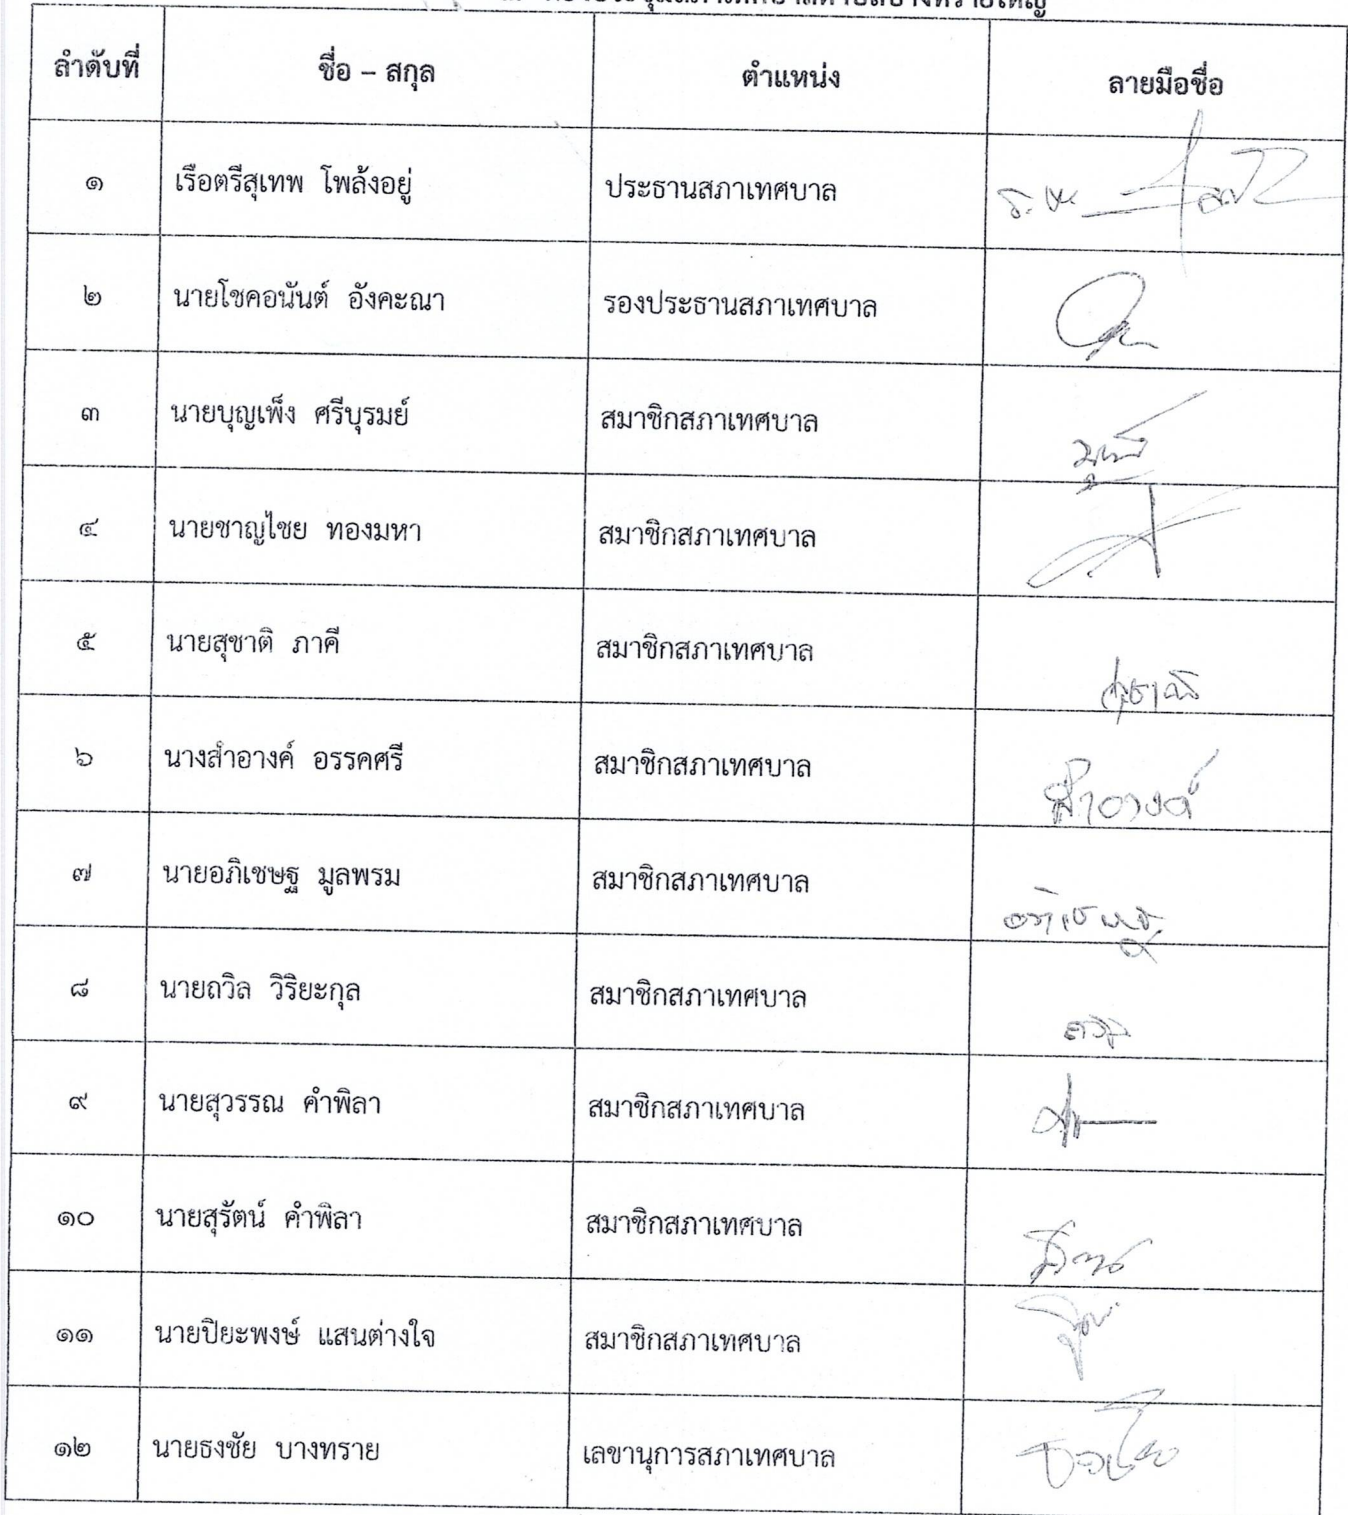 ลำดับที่ ชื่อ – สกุล ตำแหน่ง ลายมือชื่อ
๑ เรือตรีสุเทพ โพล้งอยู่ ประธานสภาเทศบาล
๒ นายโชคอนันต์ อังคะณา รองประธานสภาเทศบาล
๓ นายบุญเพ็ง ศรีบุรมย์ สมาชิกสภาเทศบาล
๔ นายชาญไชย ทองมหา สมาชิกสภาเทศบาล
๕ นายสุชาติ ภาคี สมาชิกสภาเทศบาล สุชาติ
๖ นางสำอางค์ อรรคศรี สมาชิกสภาเทศบาล สำอางค์
๗ นายอภิเชษฐ มูลพรม สมาชิกสภาเทศบาล อภิเชษฐ
๘ นายถวิล วิริยะกุล สมาชิกสภาเทศบาล ถวิล
๙ นายสุวรรณ คำพิลา สมาชิกสภาเทศบาล
๑๐ นายสุรัตน์ คำพิลา สมาชิกสภาเทศบาล
๑๑ นายปิยะพงษ์ แสนต่างใจ สมาชิกสภาเทศบาล
๑๒ นายธงชัย บางทราย เลขานุการสภาเทศบาล